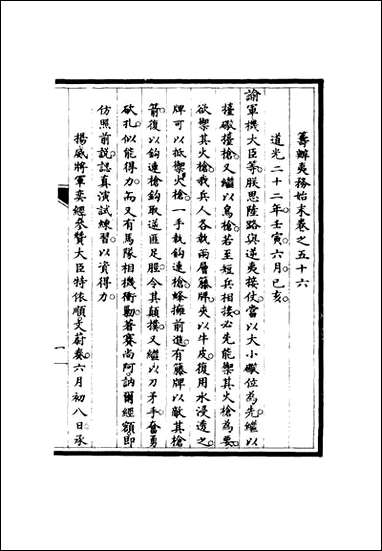 籌辦夷務始末卷之五十六
道光二十二年壬寅六月己亥
諭軍機大臣等朕思陸路與逆夷接仗當以大小礮位為先繼以
擡礮擡槍又繼以鳥槍若至短兵相接必先能禦其火槍為要
欲禦其火槍我兵人各執兩層籐牌夾以牛皮復用水浸透之
牌可以抵禦火槍一手執鉤連槍蜂擁前進有籐牌以敵其槍
箭復以鉤連槍鉤取逆匪足脛令其顛撲又繼以刀矛手奮勇
砍扎似能得力而又有馬隊相機衝擊著賽尚阿訥爾經額即
仿照前說認真演試練習以資得力
揚威將軍奕經參贊大臣特依順文蔚奏六月初八日承
一